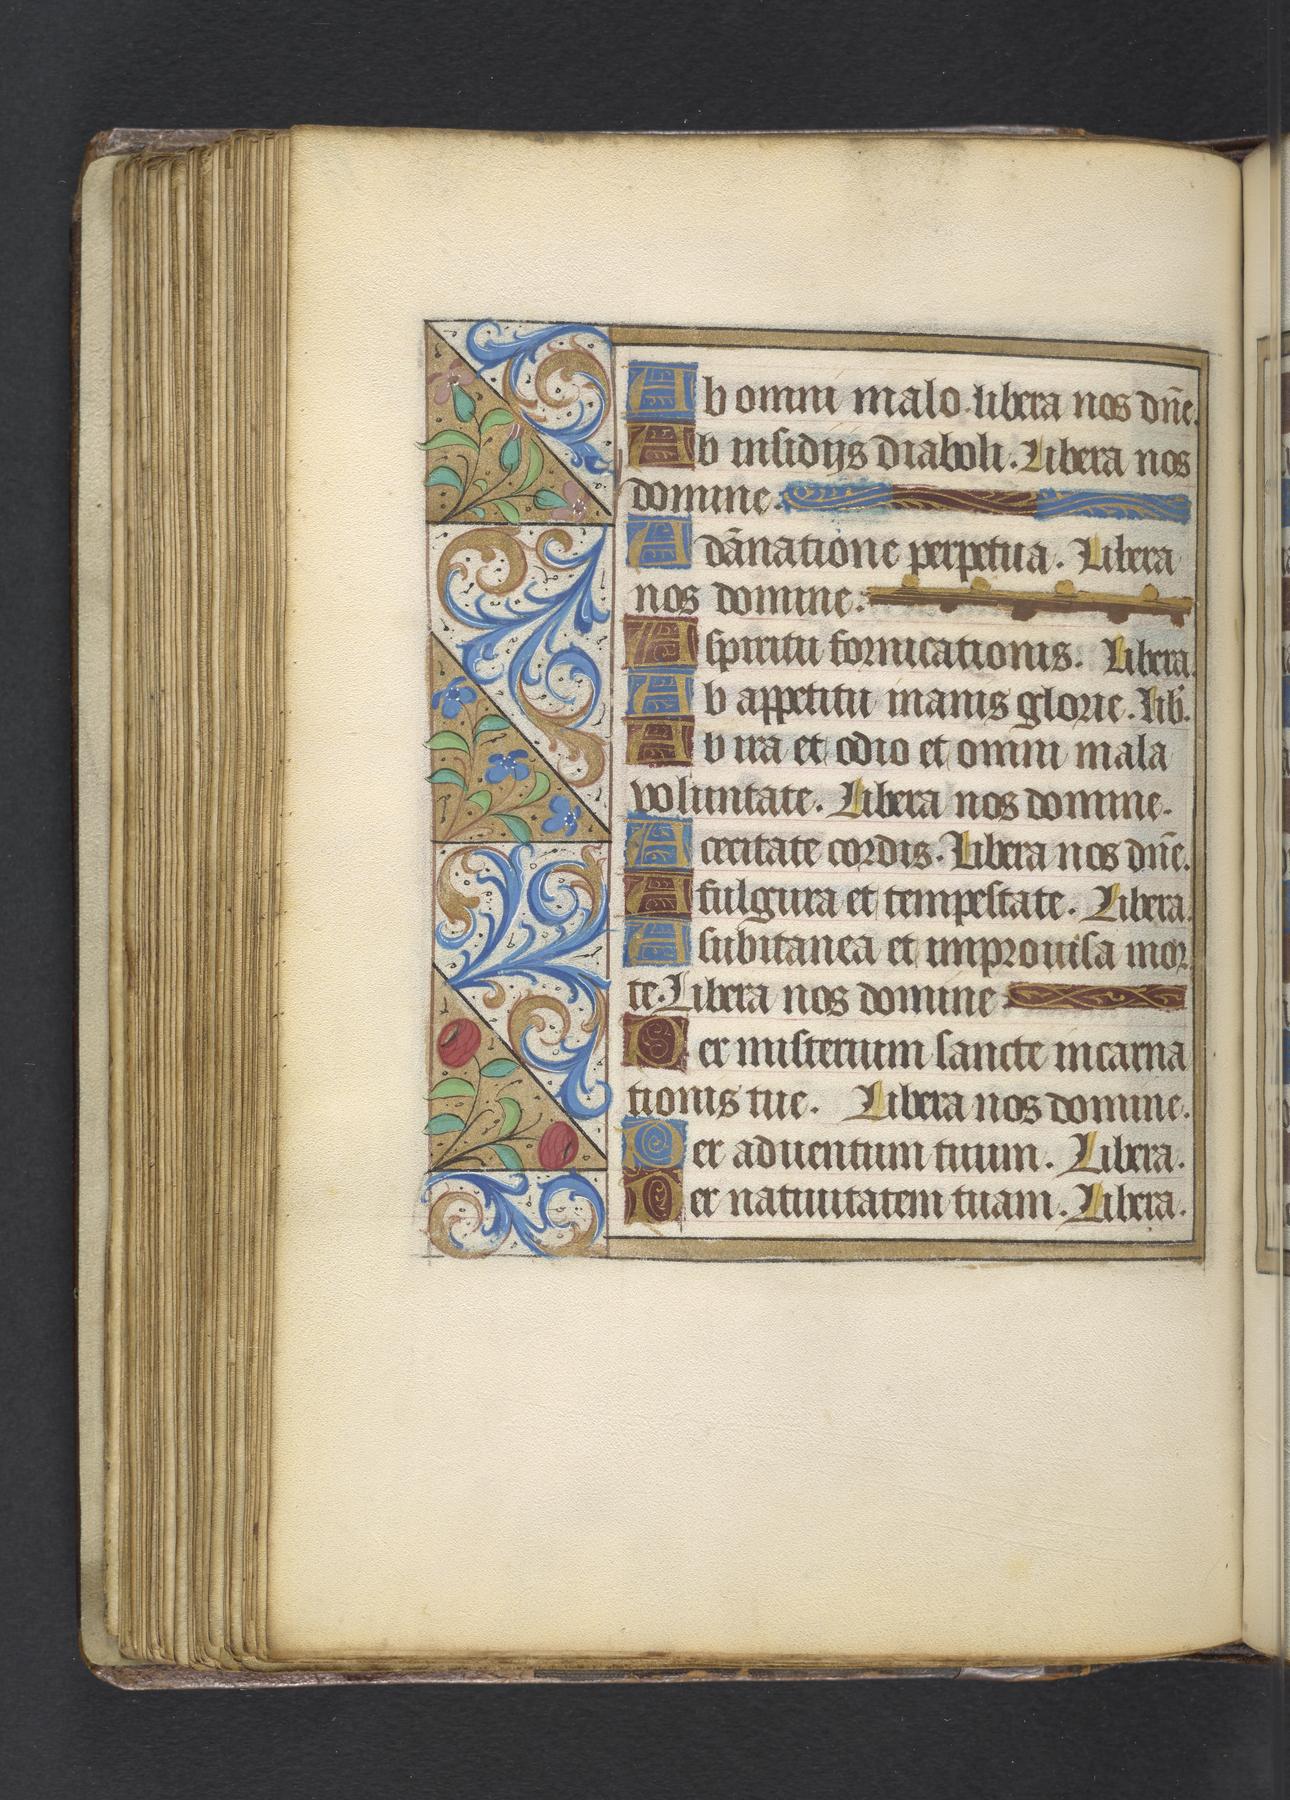 Ab omni malo. libera nos dn̄e.
Ab insidijs diaboli. Libera nos
domine.
A dānatione perpetua. Libera
nos domine.
A spiritu fornicationis. Libera.
Ab appetitu inanis glorie. Lib̄.
Ab ira et odio et omni mala
voluntate. Libera nos domine.
A cecitate cordis. Libera nos dn̄e.
A fulgura et tempestate. Libera.
A subitanea et improuisa mor
te. Libera nos domine
Per misterium sancte incarna
tionis tue. Libera nos domine.
Per aduentum tuum. Libera.
Per natiuitatem tuam. Libera.